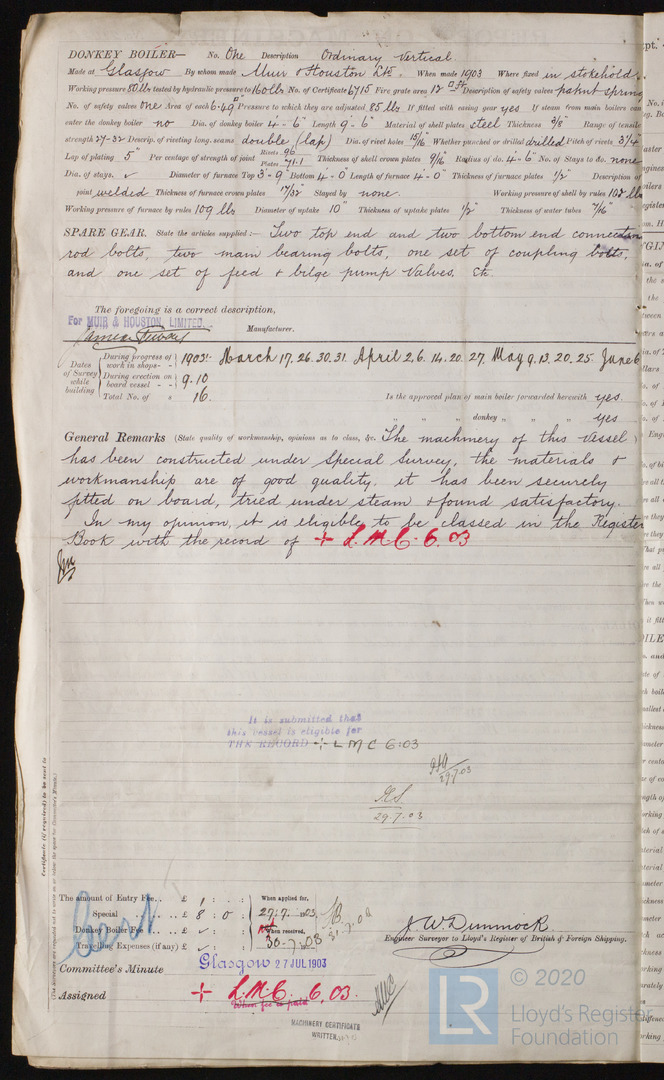 DONKEY BOILER— No. One Description Ordinary Vertical.
Made at Glasgow By whom made Muir & Houston Ltd. When made 1903 Where fixed in stokehold.
Working pressure 80 lbs tested by hydraulic pressure to 160 lbs No. of Certificate 6715 Fire grate area 12 □ft Description of safety valves patent spring
No. of safety valves one Area of each 6.49□" Pressure to which they are adjusted 85 lbs. If fitted with easing gear yes If steam from main boilers can
enter the donkey boiler no Dia. of donkey boiler 4'-6" Length 9'-6" Material of shell plates steel Thickness 3/8 Range of tensile
strength 27-32 Descrip. of riveting long. seams double (lap) Dia. of rivet holes 15/16 Whether punched or drilled drilled Pitch of rivets 3 1/4
Lap of plating 5" Per centage of strength of joint Rivets 96 Plates 71.1 Thickness of shell crown plates 9/16 Radius of do. 4'-6" No. of Stays to do. none
Dia. of stays. ✓ Diameter of furnace Top 3'-9" Bottom 4'-0" Length of furnace 4'-0" Thickness of furnace plates 1/2" Description of
joint welded Thickness of furnace crown plates 17/32 Stayed by none. Working pressure of shell by rules 102 lbs
Working pressure of furnace by rules 109 lbs Diameter of uptake 10" Thickness of uptake plates 1/2" Thickness of water tubes 7/16"
SPARE GEAR. State the articles supplied:— Two top end and two bottom end connecting
rod bolts, two main bearing bolts, one set of coupling bolts,
and one set of feed & bilge pump valves, &c.
The foregoing is a correct description,
For MUIR & HOUSTON, LIMITED.
Manufacturer.
Dates of Survey while building
During progress of work in shops - - 1903:- March 17. 26. 30. 31. April 2. 6. 14. 20. 27. May 9. 13. 20. 25. June 6
During erection on board vessel - - 9. 10
Total No. of s 16.
Is the approved plan of main boiler forwarded herewith yes.
" " " donkey " " " yes
General Remarks (State quality of workmanship, opinions as to class, &c. The machinery of this vessel
has been constructed under special survey, the materials &
workmanship are of good quality, it has been securely
fitted on board, tried under steam & found satisfactory.
In my opinion, it is eligible to be classed in the Register
Book with the record of + L.M.C. 6. 03
It is submitted that
this vessel is eligible for
THE RECORD + L M C 6:03
29.7.03
29.7.03
Certificate (if required) to be sent to
The amount of Entry Fee. . £ 1 : : When applied for,
Special . . . . £ 8 : 0 : 27.7.1903
Donkey Boiler Fee . . . £ ✓ : : When received,
Travelling Expenses (if any) £ ✓ : : 30-7-03
Cert
J. W. Dimmock.
Engineer Surveyor to Lloyd's Register of British & Foreign Shipping.
Committee's Minute Glasgow 27 JUL 1903
Assigned + L.M.C. 6. 03.
When fee is paid
MACHINERY CERTIFICATE
WRITTEN
© 2020
LR
Lloyd's Register
Foundation